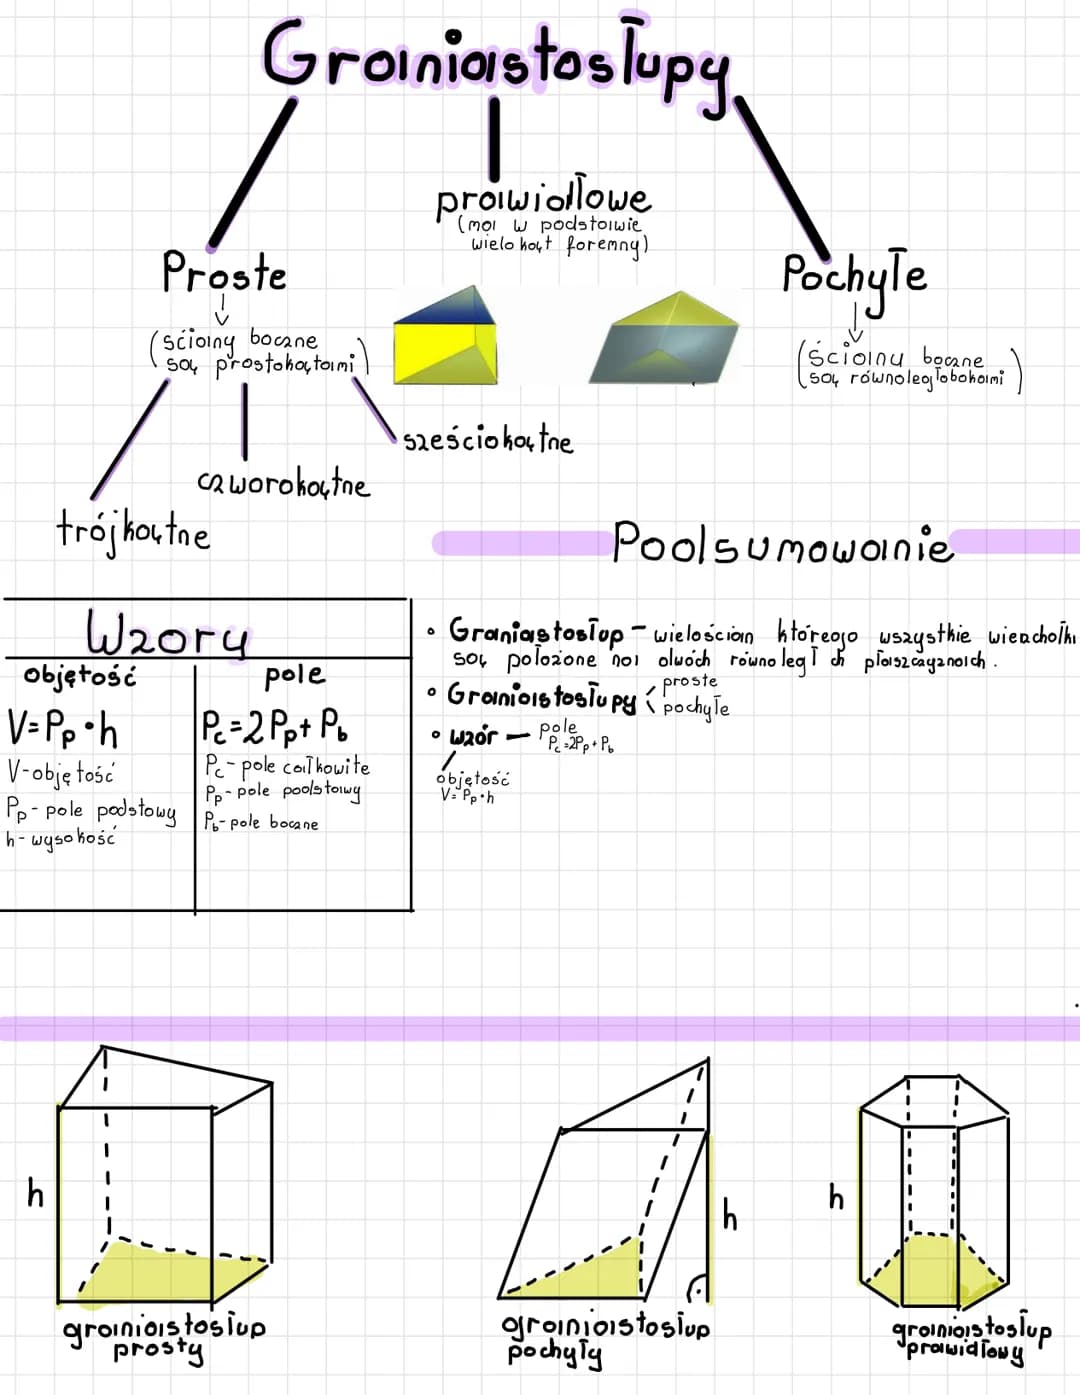 Graniastosłupy
prawidłowe
(ma w podstawie
wielokąt foremny)
Proste
(ściany boczne
są prostokątami)
Pochyłe
(ściany boczne
są równoległobokami)
sześciokątne
czworokątne
trójkątne
Podsumowanie
Wzory
objętość
V=Pp•h
V-objętość
Pp- pole podstawy
h- wysokość
pole
Pc=2Pp+Pb
Pc- pole całkowite
Pp- pole podstawy
Pb- pole boczne
• Graniastosłup - wielościan którego wszystkie wierzchołki
są położone na dwóch równoległych płaszczyznach.
• Graniastosłupy < proste
pochyłe
• wzór — pole
Pc=2Pp+Pb
objętość
V=Pp•h
h
graniastosłup
prosty
h
graniastosłup
pochyły
h
graniastosłup
prawidłowy